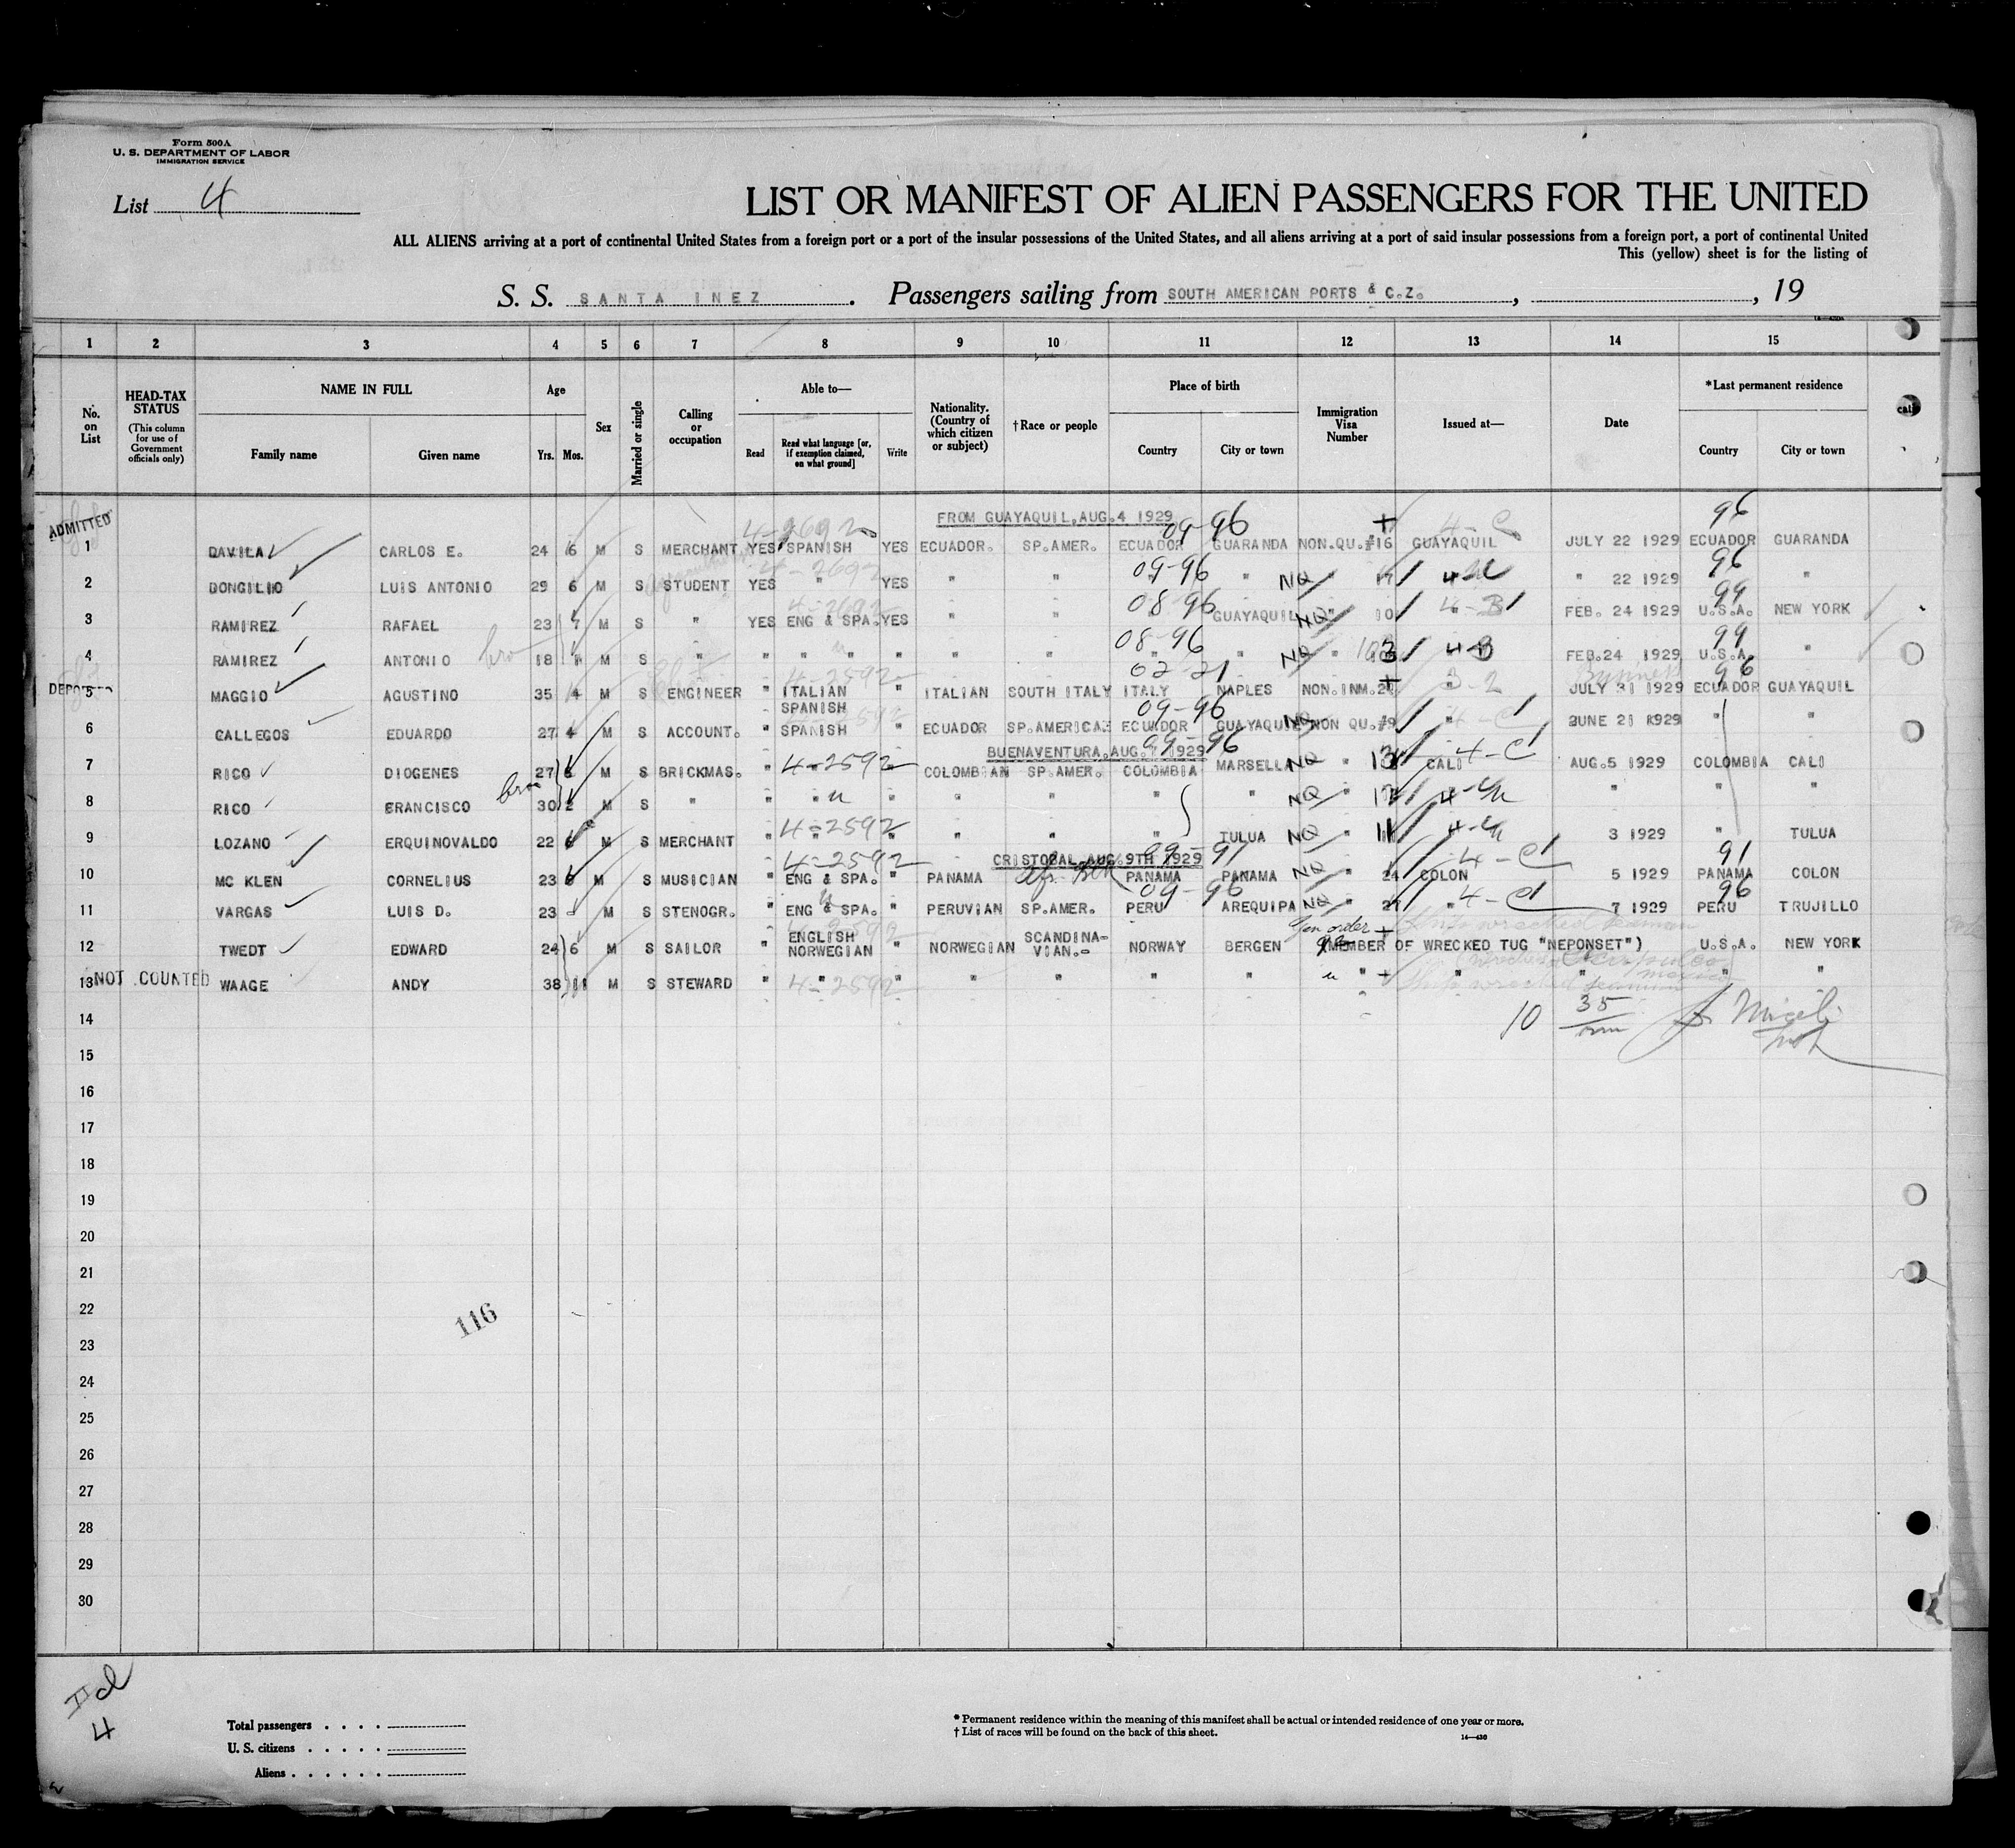 Form 500A
U. S. DEPARTMENT OF LABOR
IMMIGRATION SERVICE
List 4
LIST OR MANIFEST OF ALIEN PASSENGERS FOR THE UNITED
ALL ALIENS arriving at a port of continental United States from a foreign port or a port of the insular possessions of the United States, and all aliens arriving at a port of said insular possessions from a foreign port, a port of continental United
This (yellow) sheet is for the listing of
S. S. SANTA INEZ. Passengers sailing from SOUTH AMERICAN PORTS & C.Z., , 19
1 2 3 4 5 6 7 8 9 10 11 12 13 14 15
No. on List
HEAD-TAX STATUS (This column for use of Government officials only)
NAME IN FULL Family name Given name
Age Yrs. Mos.
Sex
Married or single
Calling or occupation
Able to— Read Read what language [or, if exemption claimed, on what ground] Write
Nationality. (Country of which citizen or subject)
†Race or people
Place of birth Country City or town
Immigration Visa Number
Issued at—
Date
*Last permanent residence Country City or town
FROM GUAYAQUIL, AUG. 4 1929 09-96 96
ADMITTED
1 DAVILA CARLOS E. 24 6 M S MERCHANT YES SPANISH YES ECUADOR. SP.AMER. ECUADOR GUARANDA NON.QU.#16 GUAYAQUIL JULY 22 1929 ECUADOR GUARANDA
09-96 96
2 LUIS ANTONIO 29 6 M S STUDENT YES " YES " " " " NQ 4-C " 22 1929 " "
08-96 99
3 RAMIREZ RAFAEL 23 M S " YES ENG & SPA. YES " " " GUAYAQUIL NQ " 10 " FEB. 24 1929 U.S.A. NEW YORK
08-96 99
4 RAMIREZ ANTONIO bro 18 M S " " " " " " " " " NQ " " FEB.24 1929 U.S.A. "
02-21 96
DEPORTED
5 MAGGIO AGUSTINO 35 4 M S ENGINEER " ITALIAN SPANISH " ITALIAN SOUTH ITALY ITALY NAPLES NON.INM. 3-2 JULY 31 1929 ECUADOR GUAYAQUIL
09-96
6 GALLEGOS EDUARDO 27 4 M S ACCOUNT. " SPANISH " ECUADOR SP.AMERICA ECUADOR GUAYAQUIL NON QU. " 4-C JUNE 21 1929 " "
BUENAVENTURA, AUG. 7 1929 09-96
7 RICO DIOGENES 27 M S BRICKMAS. " 4-2592 " COLOMBIAN SP.AMER. COLOMBIA MARSELLA NQ " 13 CALI 4-C AUG.5 1929 COLOMBIA CALI
8 RICO bro FRANCISCO 30 2 M S " " " " " " " NQ " " " " "
9 LOZANO ERQUINOVALDO 22 6 M S MERCHANT " 4-2592 " " " " TULUA NQ " 11 " 3 1929 " TULUA
CRISTOBAL AUG. 9TH 1929 09-91 91
10 MC KLEN CORNELIUS 23 M S MUSICIAN " 4-2592 ENG & SPA. " PANAMA Afr. Blk PANAMA PANAMA NQ " 24 COLON 4-C 5 1929 PANAMA COLON
09-96 96
11 VARGAS LUIS D. 23 - M S STENOGR. " ENG & SPA. " PERUVIAN SP.AMER. PERU AREQUIPA NQ " 4-C 7 1929 PERU TRUJILLO
12 TWEDT EDWARD 24 6 M S SAILOR " ENGLISH NORWEGIAN " NORWEGIAN SCANDINA-VIAN.- NORWAY BERGEN Gen order (MEMBER OF WRECKED TUG "NEPONSET") U.S.A. NEW YORK
NOT COUNTED
13 WAAGE ANDY 38 11 M S STEWARD " " 4-2592 " " " " " " " ship wrecked seaman " " "
14 10 35
15
16
17
18
19
20
21
22
116
23
24
25
26
27
28
29
30
4
Total passengers . . . .
U. S. citizens . . . . .
Aliens . . . . . .
* Permanent residence within the meaning of this manifest shall be actual or intended residence of one year or more.
† List of races will be found on the back of this sheet.
14—430